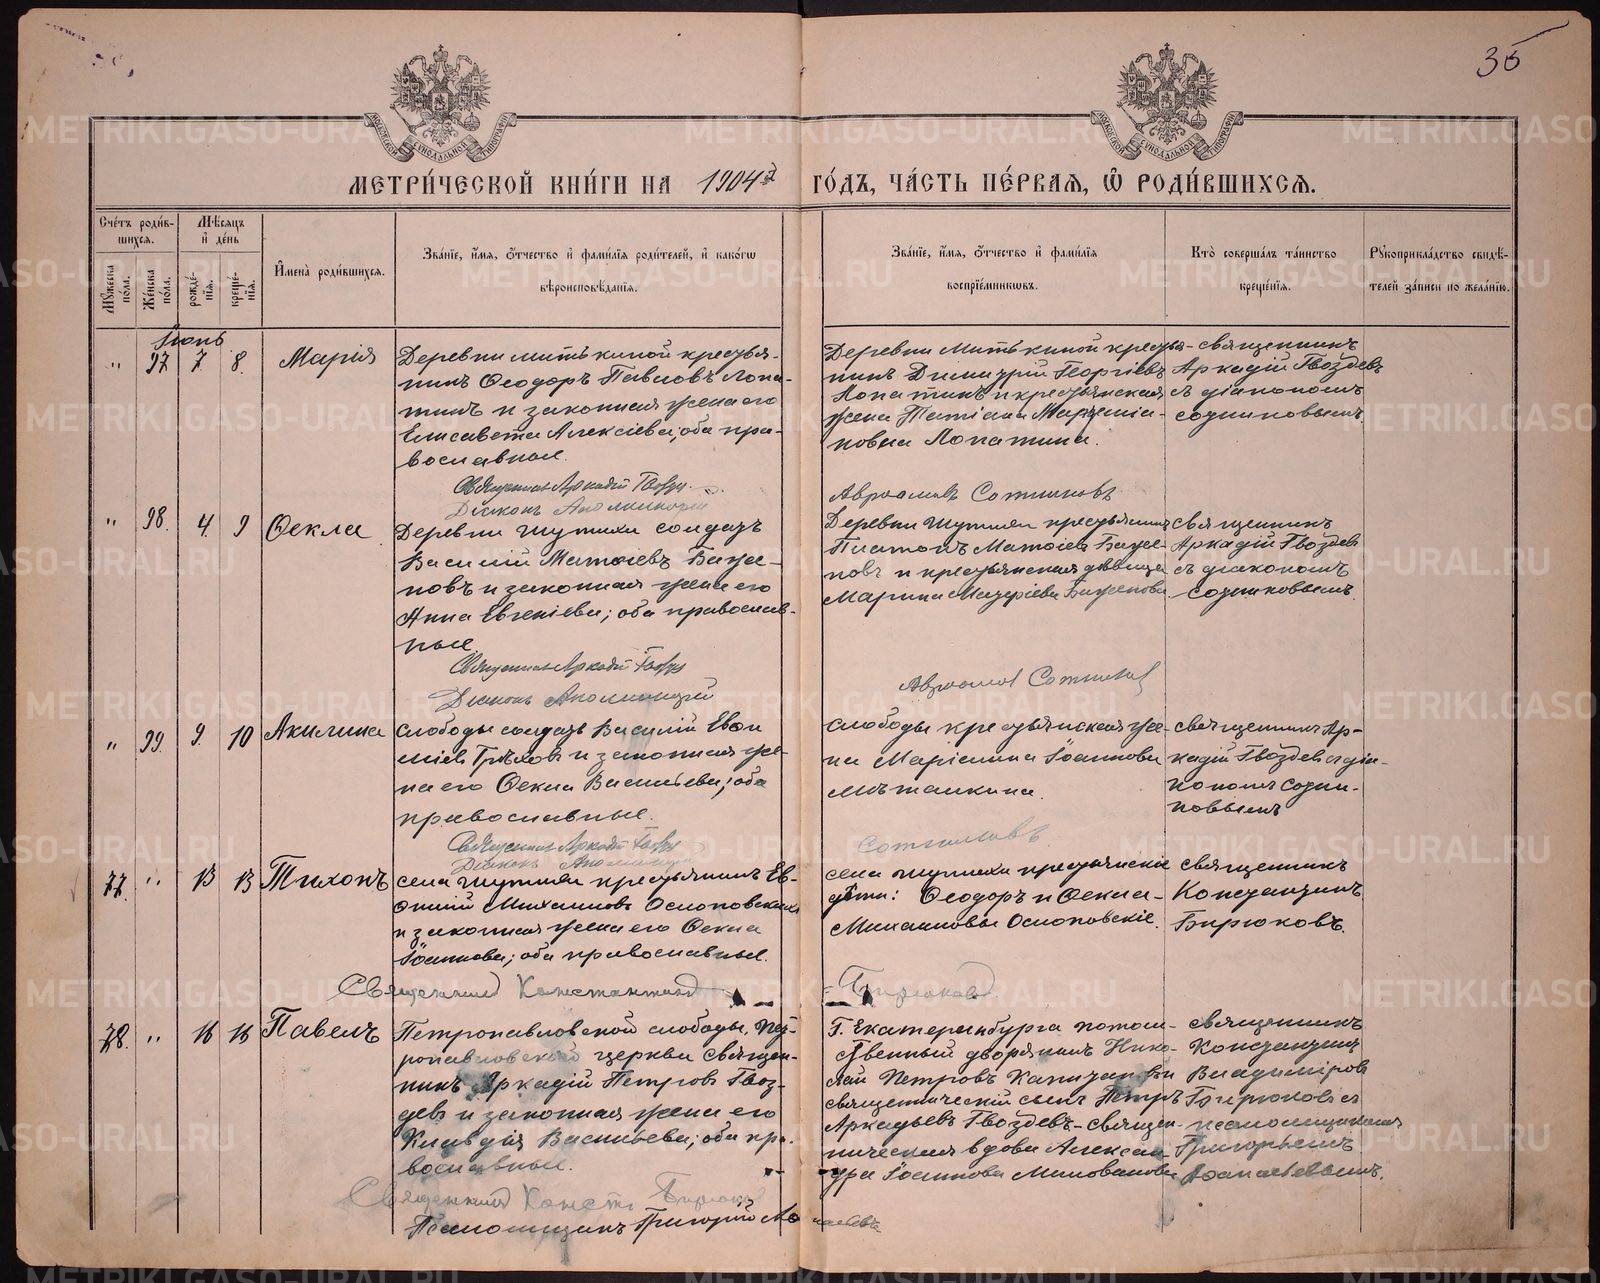 35
МЕТРИ́ЧЕСКОЙ КНИ́ГИ НА 1904й ГО́ДЪ, ЧА́СТЬ ПЕ́РВАЯ, Ѡ҆ РОДИ́ВШИХСЯ.
Сче́тъ роди́в-
шихся.
Мѣ́сяцъ
и҆ де́нь
Мꙋ́жеска
по́ла.
Же́нска
по́ла.
рожде́-
нїѧ.
креще́-
нїѧ.
И҆мена̀ роди́вшихся.
Зва́нїе, и҆́мѧ, ѻ҆́тчество и҆ фамѝлїѧ роди́телей, и҆ како́гѡ
вѣроисповѣ́данїѧ.
Зва́нїе, и҆́мѧ, ѻ҆́тчество и҆ фамѝлїѧ
воспрїе́мникѡвъ.
Кто̀ соверша́лъ та́инство
креще́нїѧ.
Рꙋкоприкла́дство свидѣ́-
телей за́писи по жела́нїю.
Іюнь
" 97 7 8. Марія
Деревни Митькиной крестья-
нинъ Ѳеодоръ Павловъ Лопа-
тинъ и законная жена его
Елисавета Алексіева; оба пра-
вославные.
Священникъ Аркадій Гвозд
Діаконъ
Деревни Митькиной крестья-
нинъ Димитрій Георгіевъ
Лопатинъ и крестьянская
жена Татіана
новна Лопатина.
Авраамовъ Сотниковъ
священникъ
Аркадій Гвоздевъ
съ діакономъ
Сотниковымъ.
" 98. 4. 9 Ѳекла
Деревни Шутихи солдатъ
Василій Матѳіевъ Баже-
новъ и законная жена его
Анна Евгеніева; оба православ-
ные.
Священникъ Аркадій Гвозд
Діаконъ
Деревни Шутихи крестьянинъ
Платонъ Матѳіевъ Баже-
новъ и крестьянская дѣвица
Марина Баженова.
Сотников
священникъ
Аркадій Гвоздев
съ діакономъ
Сотниковымъ.
" 99. 9. 10 Акилина
слободы солдатъ Василій Евѳи
міевъ Грѣховъ и законная же-
на его Ѳекла Васильева; оба
православные.
Священникъ Аркадій Гвозд
Діаконъ
слободы крестьянская же-
на Маріамна Іоаннова
Мѣталкина.
Сотниковъ
священникъ Ар-
кадій Гвоздевъ съ діа-
кономъ Сотни-
ковымъ
77. " 13 13 Тихонъ
села Шутихи крестьянинъ Ев-
ѳимій Михаиловъ Ослоповскихъ
и законная жена его Ѳекла
Іоаннова; оба православные.
Священникъ Константинъ Бирюковъ.
села Шутихи крестьянскіе
дѣти: Ѳеодоръ и Ѳекла-
Михаиловы Ослоповскіе.
священникъ
Константинъ
Бирюковъ.
78. " 16 16 Павелъ
Петропавловской слободы, Пет-
ропавловской церкви священ-
никъ Аркадій Петровъ Гвоз-
девъ и законная жена его
Клавдія Васильева; оба пра-
вославные.
Священникъ Конст. Бирюков
Псаломщикъ Григорій
Г. Екатеринбурга потом-
ственный дворянинъ Нико-
лай Петровъ
священническій сынъ Петръ
Аркадьевъ Гвоздевъ - священ-
ническая вдова Алексан-
дра Іоаннова Милованова
священникъ
Константинъ
Владиміровъ
Бирюковъ съ
псаломщикомъ
Григорьемъ
Аѳанасьевымъ.
METRIKI.GASO-URAL.RU